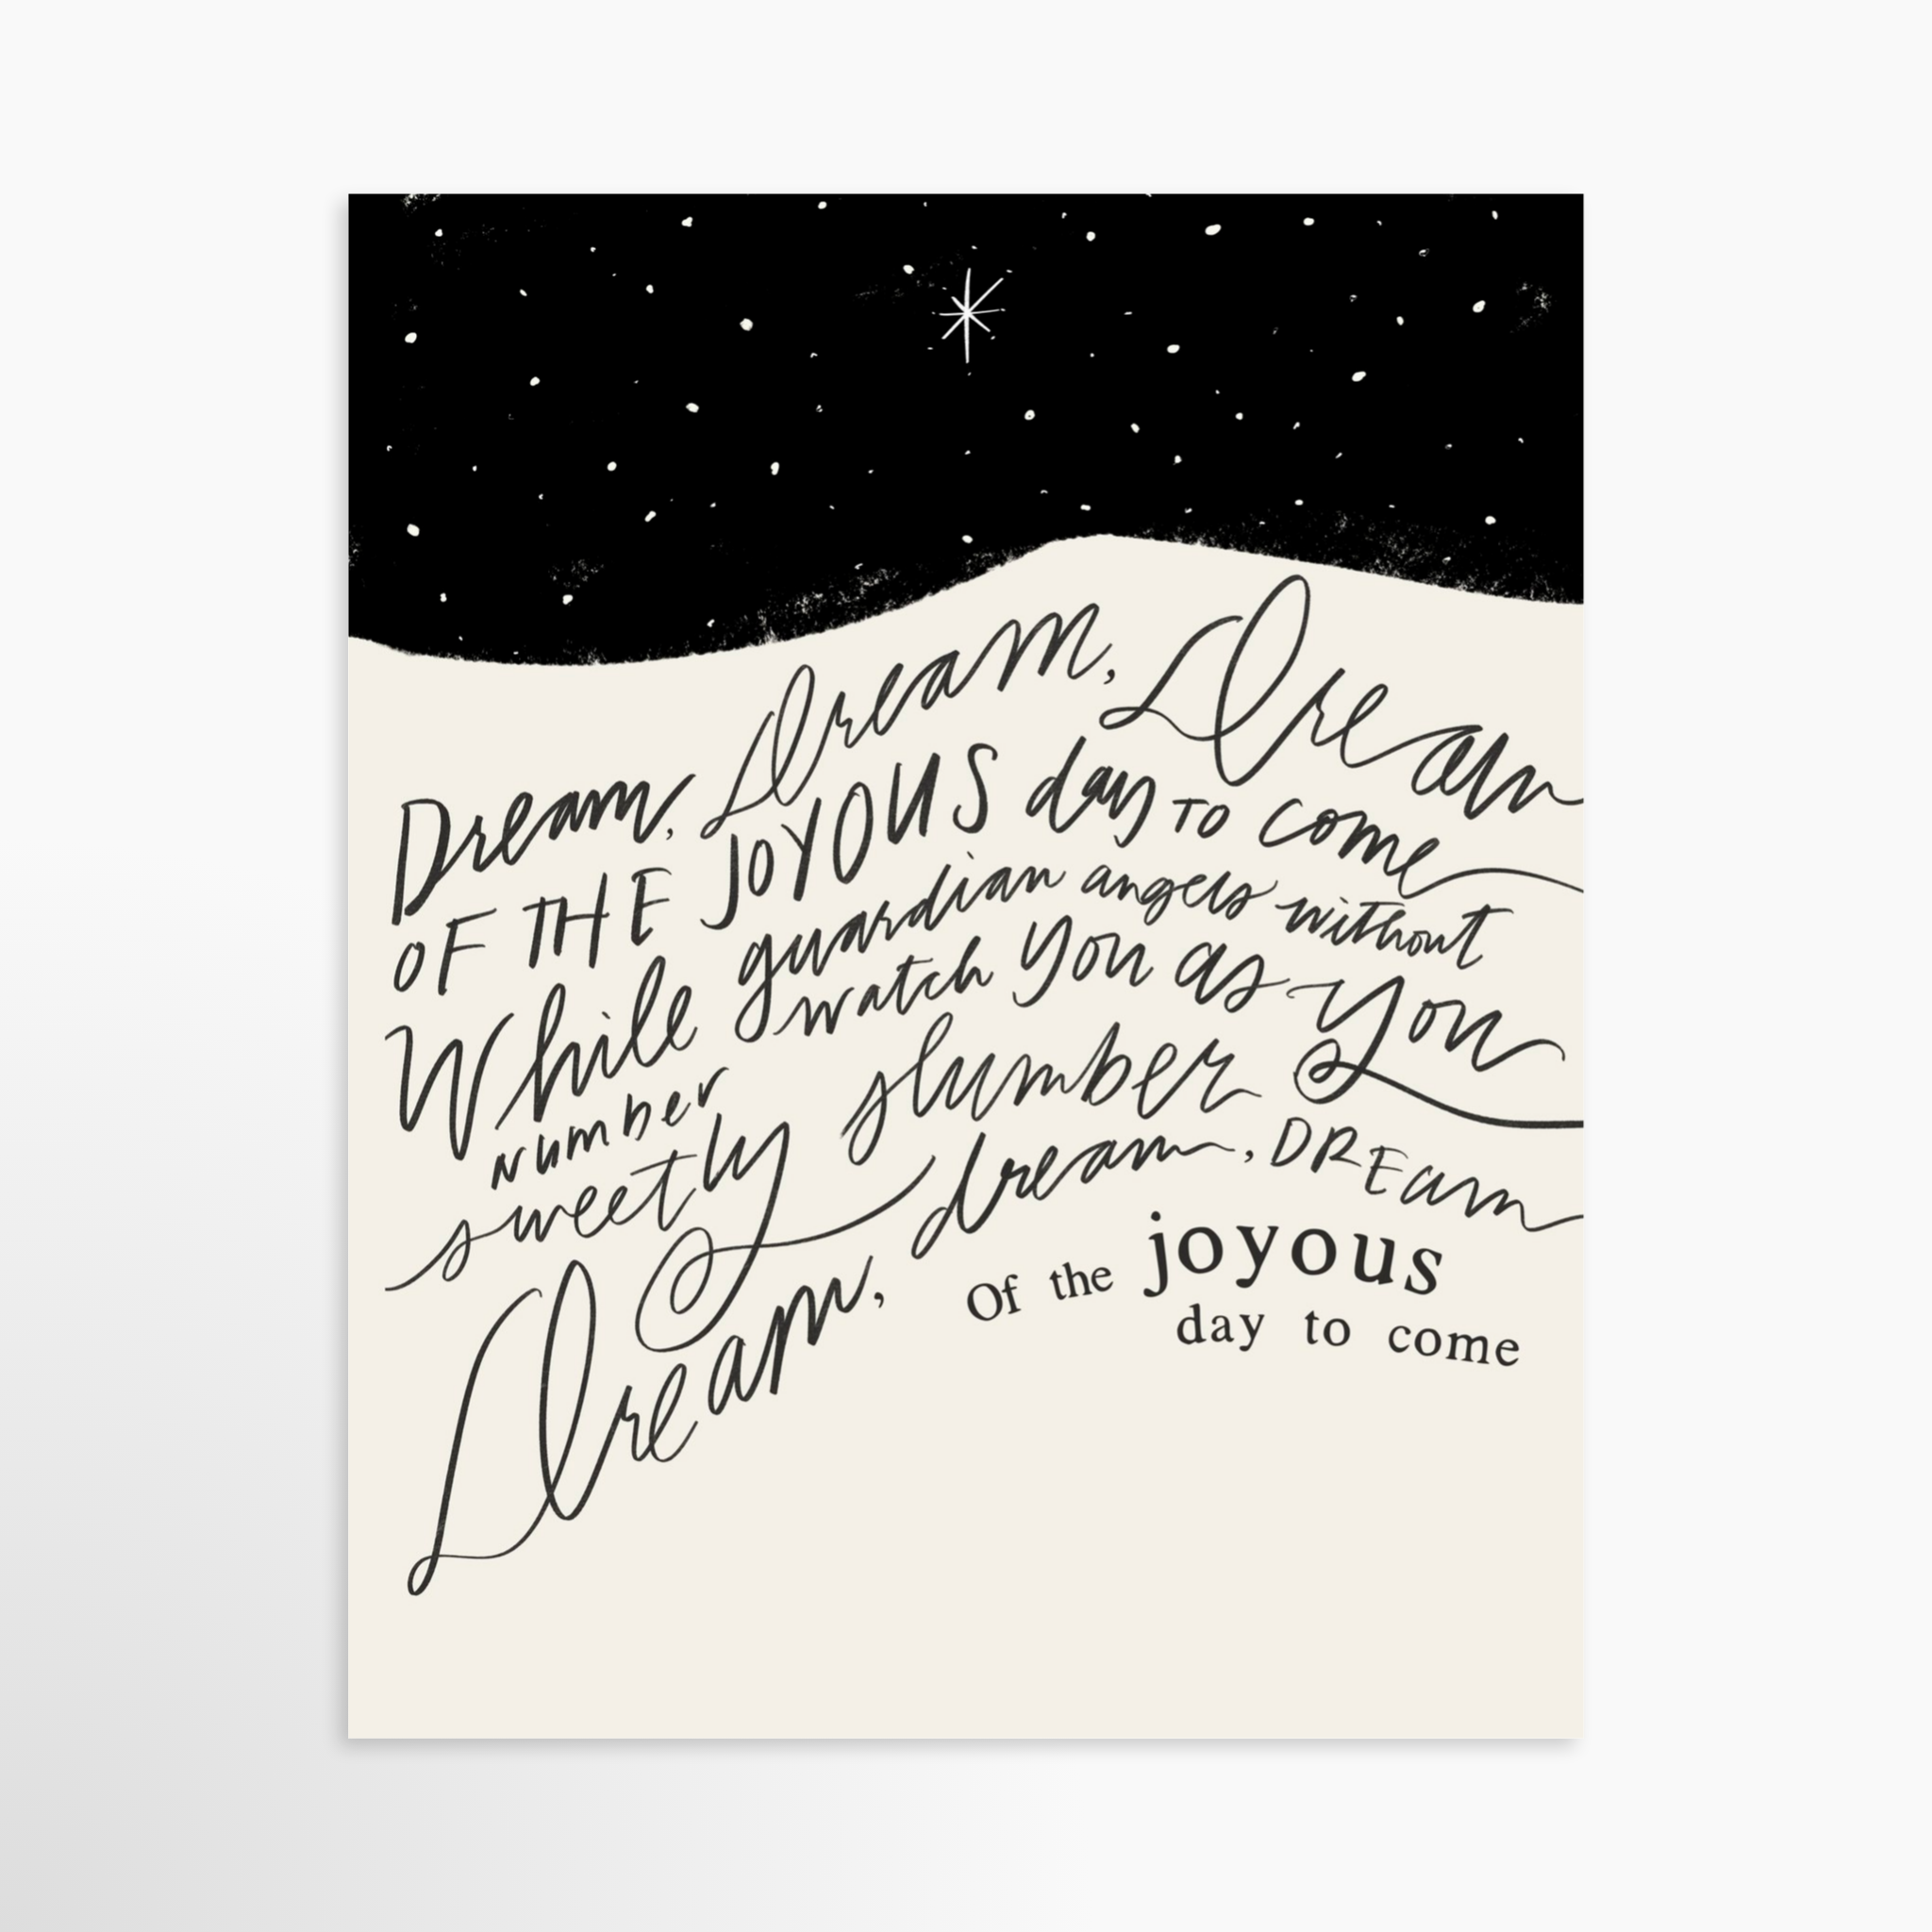 Dream, Dream, Dream
OF THE JOYOUS day TO come
While guardian angels without
number watch you as you
sweetly slumber
Dream, dream, DREam
Of the joyous
day to come